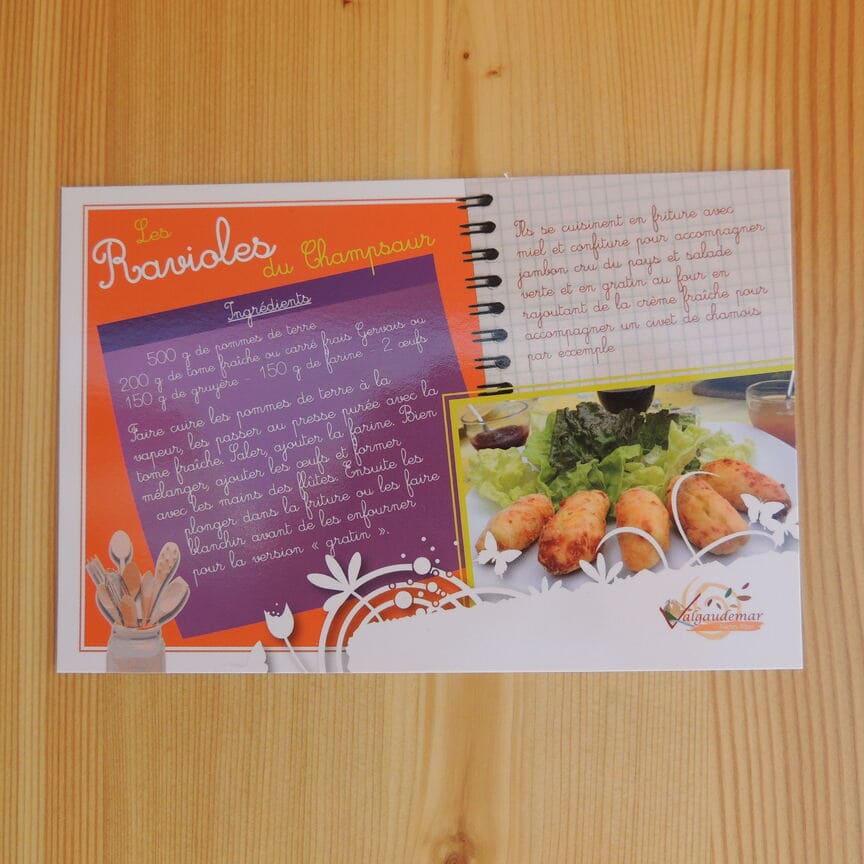 Les
Ravioles
du Champsaur
Ingrédients
500 g de pommes de terre
200 g de tome fraîche ou carré frais Gervais ou
150 g de gruyère - 150 g de farine - 2 œufs
Faire cuire les pommes de terre à la
vapeur, les passer au presse purée avec la
tome fraîche. Saler, ajouter la farine. Bien
mélanger, ajouter les œufs et former
avec les mains des flûtes. Ensuite les
plonger dans la friture ou les faire
blanchir avant de les enfourner
pour la version « gratin ».
Ils se cuisinent en friture avec
miel et confiture pour accompagner
jambon cru du pays et salade
verte et en gratin au four en
rajoutant de la crème fraîche pour
accompagner un civet de chamois
par exemple
Valgaudemar